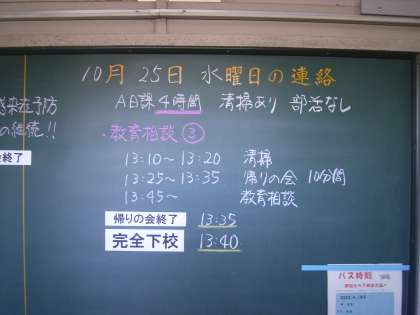 10月 25日 水曜日の連絡
A日課 4時間 清掃あり 部活なし
感染症予防
の継続!!
・教育相談 ③
会終了
13:10〜 13:20 清掃
13:25〜 13:35 帰りの会 10分間
13:45〜 教育相談
帰りの会終了 13:35
完全下校 13:40
バス時刻